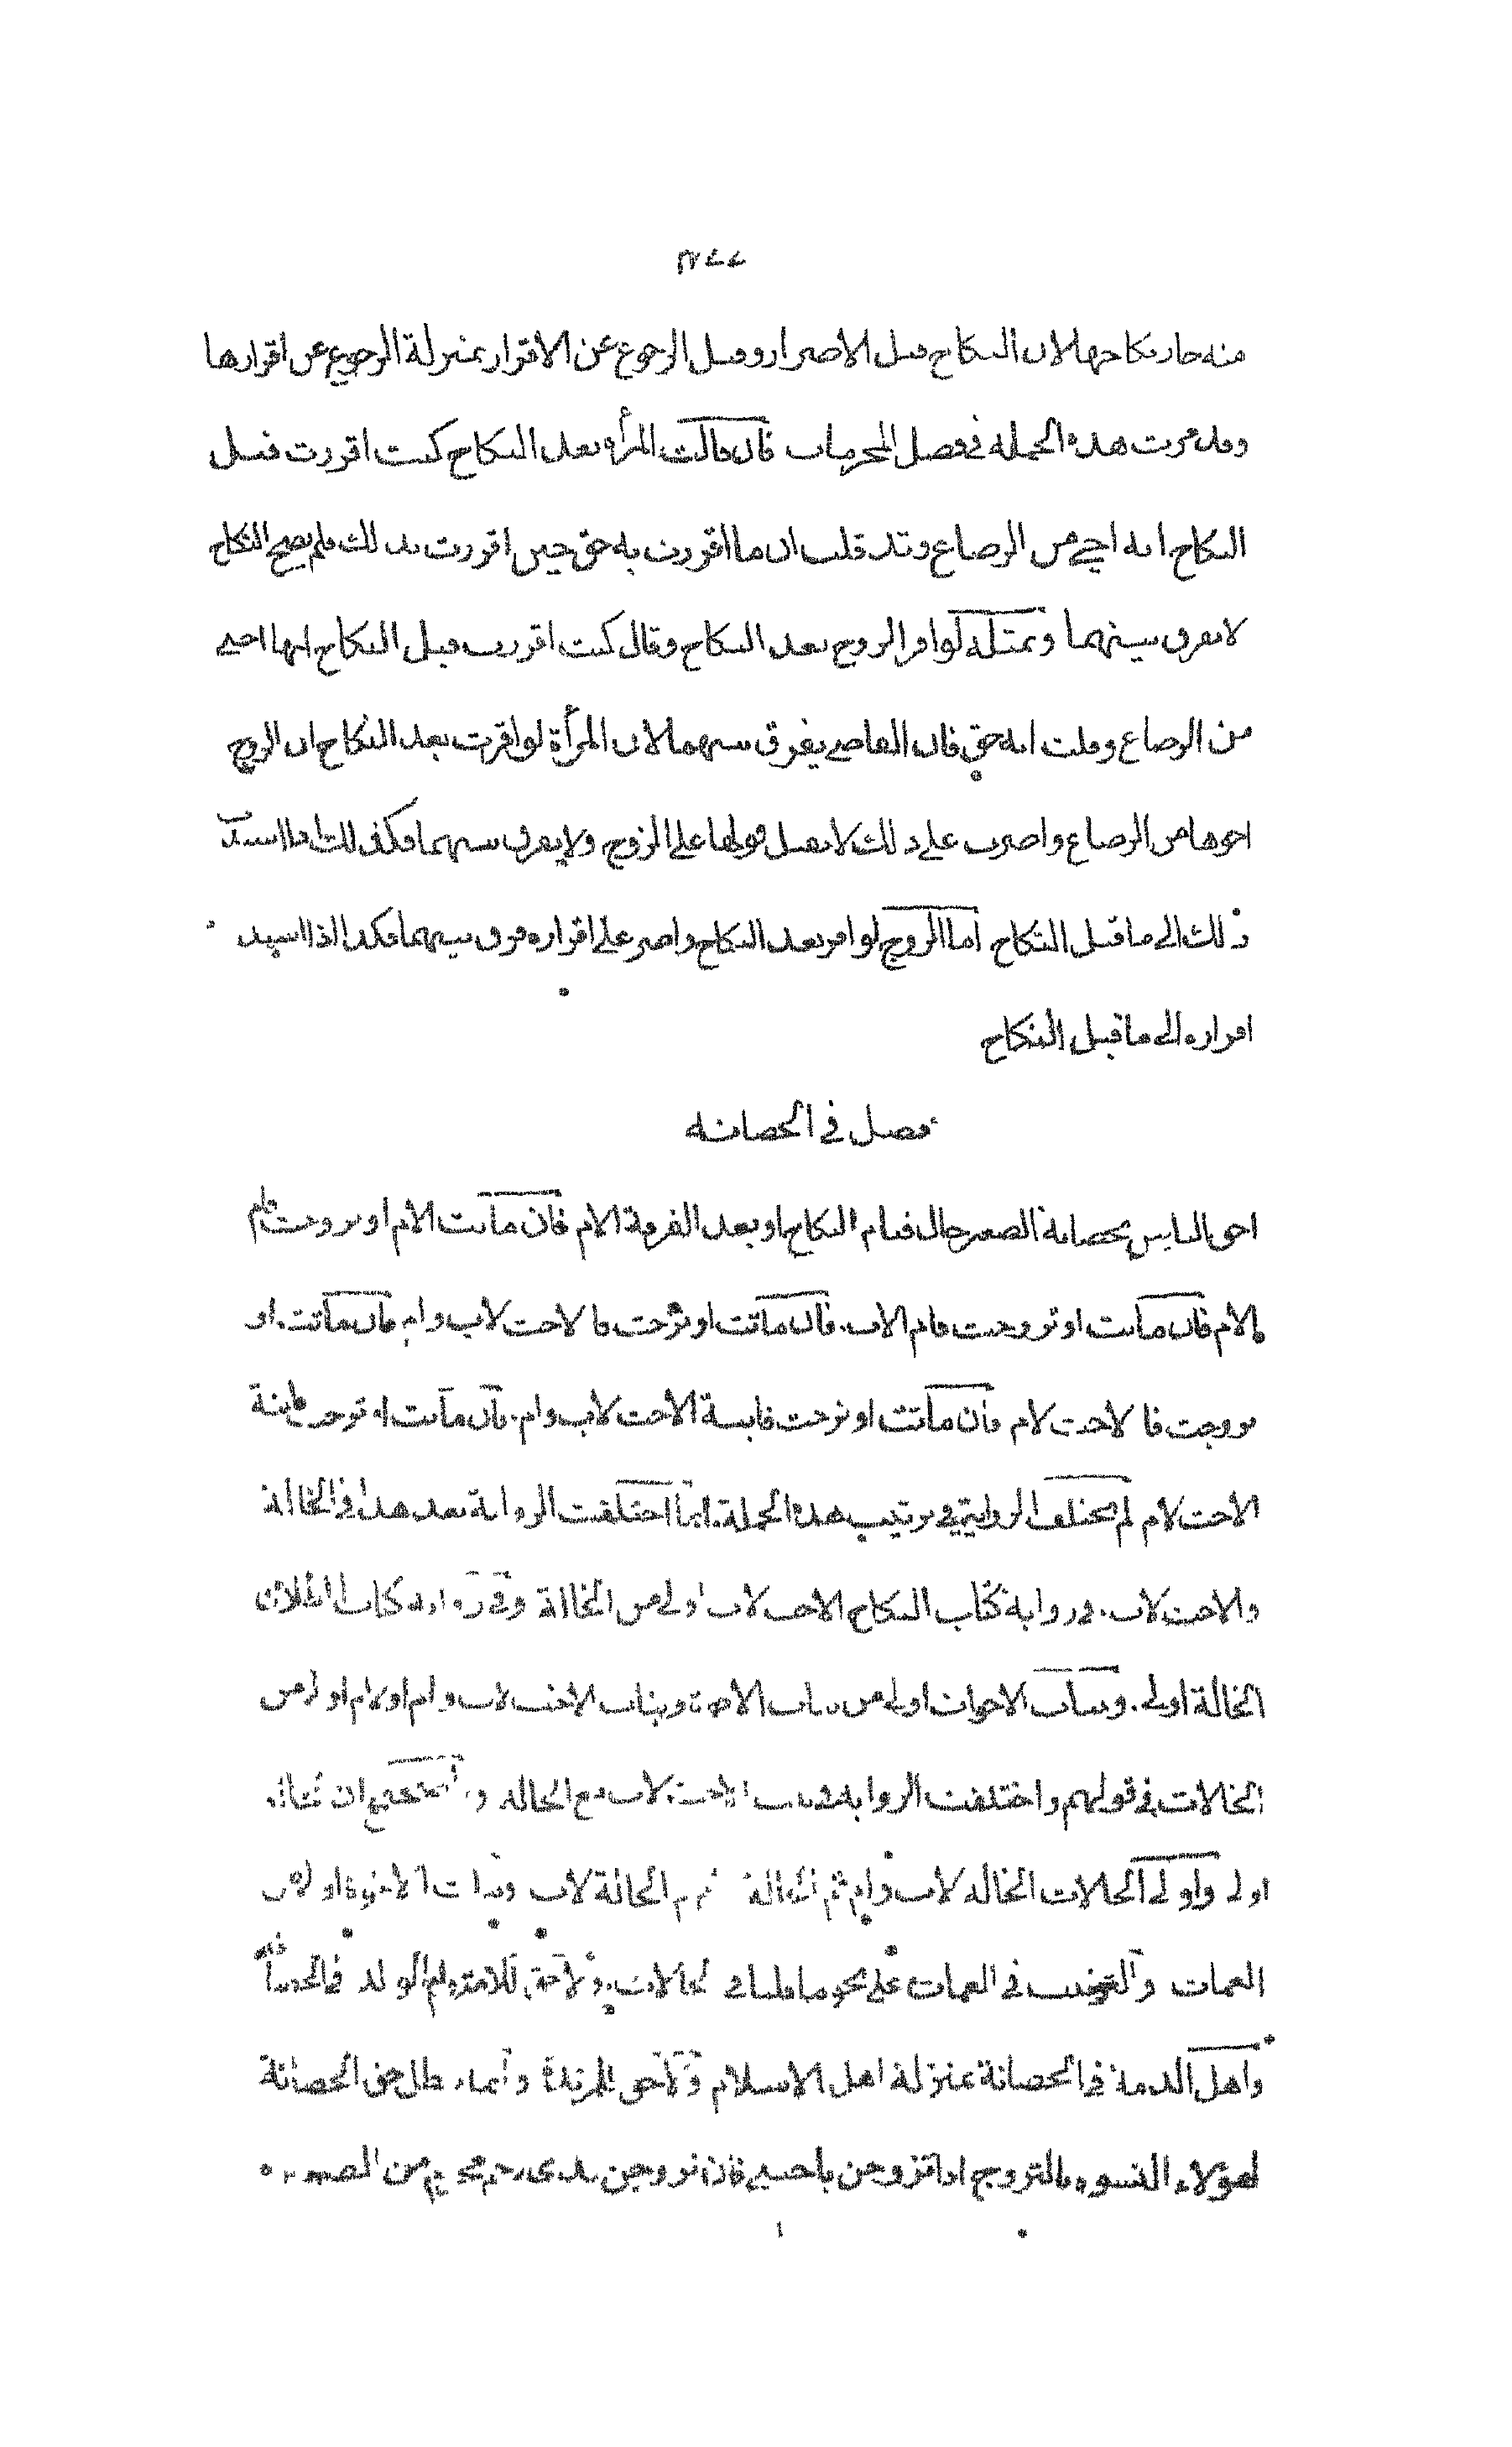 منه جاز نكاحها لان النكاح قبل الاصرار وقبل الرجوع عن الاقرار بمنزلة الرجوع عن اقرارها
وقد مرت هذه الجملة في فصل المحرمات فان قالت المرأة بعد النكاح كنت اقررت قبل
النكاح انه اخي من الرضاع وقد قلت ان ما اقررت به حق حين اقررت بذلك فلم يصح النكاح
لا يفرق بينهما وبمثله لو اقر الزوج بعد النكاح وقال كنت اقررت قبل النكاح انها اختي
من الرضاع وقلت انه حق فان القاضي يفرق بينهما لان المرأة لو اقرت بعد النكاح ان الزوج
اخوها من الرضاع واصرت على ذلك لا يقبل قولها على الزوج ولا يفرق بينهما فكذلك اذا اسندت
ذلك الى ما قبل النكاح اما الزوج لو اقر بعد النكاح واصر على اقراره فرق بينهما فكذا اذا اسند
اقراره الى ما قبل النكاح
فصل في الحضانة
احق الناس بحضانة الصغير حال قيام النكاح او بعد الفرقة الام فان ماتت الام او تزوجت فام
الام فان ماتت او تزوجت فام الاب فان ماتت او تزوجت فالاخت لاب وام فان ماتت او
تزوجت فالاخت لام فان ماتت او تزوجت فابنة الاخت لاب وام فان ماتت او تزوجت فابنة
الاخت لام لم تختلف الرواية في ترتيب هذه الجملة انما اختلفت الرواية بعد هذا في الخالة
والاخت لاب في رواية كتاب النكاح الاخت لاب اولى من الخالة وفي رواية كتاب الطلاق
الخالة اولى وبنات الاخوات اولى من بنات الاخوة وبنات الاخت لاب وام او لام اولى من
الخالات في قولهم واختلفت الرواية في بنات الاخت لاب مع الخالة والصحيح ان الخالة
اولى واولى الخالات الخالة لاب وام ثم الخالة ثم الخالة لاب وبنات الاخوة اولى من
العمات والترتيب في العمات على نحو ما قلنا في الخالات ولا حق للامة وام الولد في الحضانة
واهل الذمة في الحضانة بمنزلة اهل الاسلام ولا حق للمرتدة وانما بطل حق الحضانة
لهؤلاء النسوة بالتزوج اذا تزوجن باجنبي فان تزوجن بذي رحم محرم من الصغير